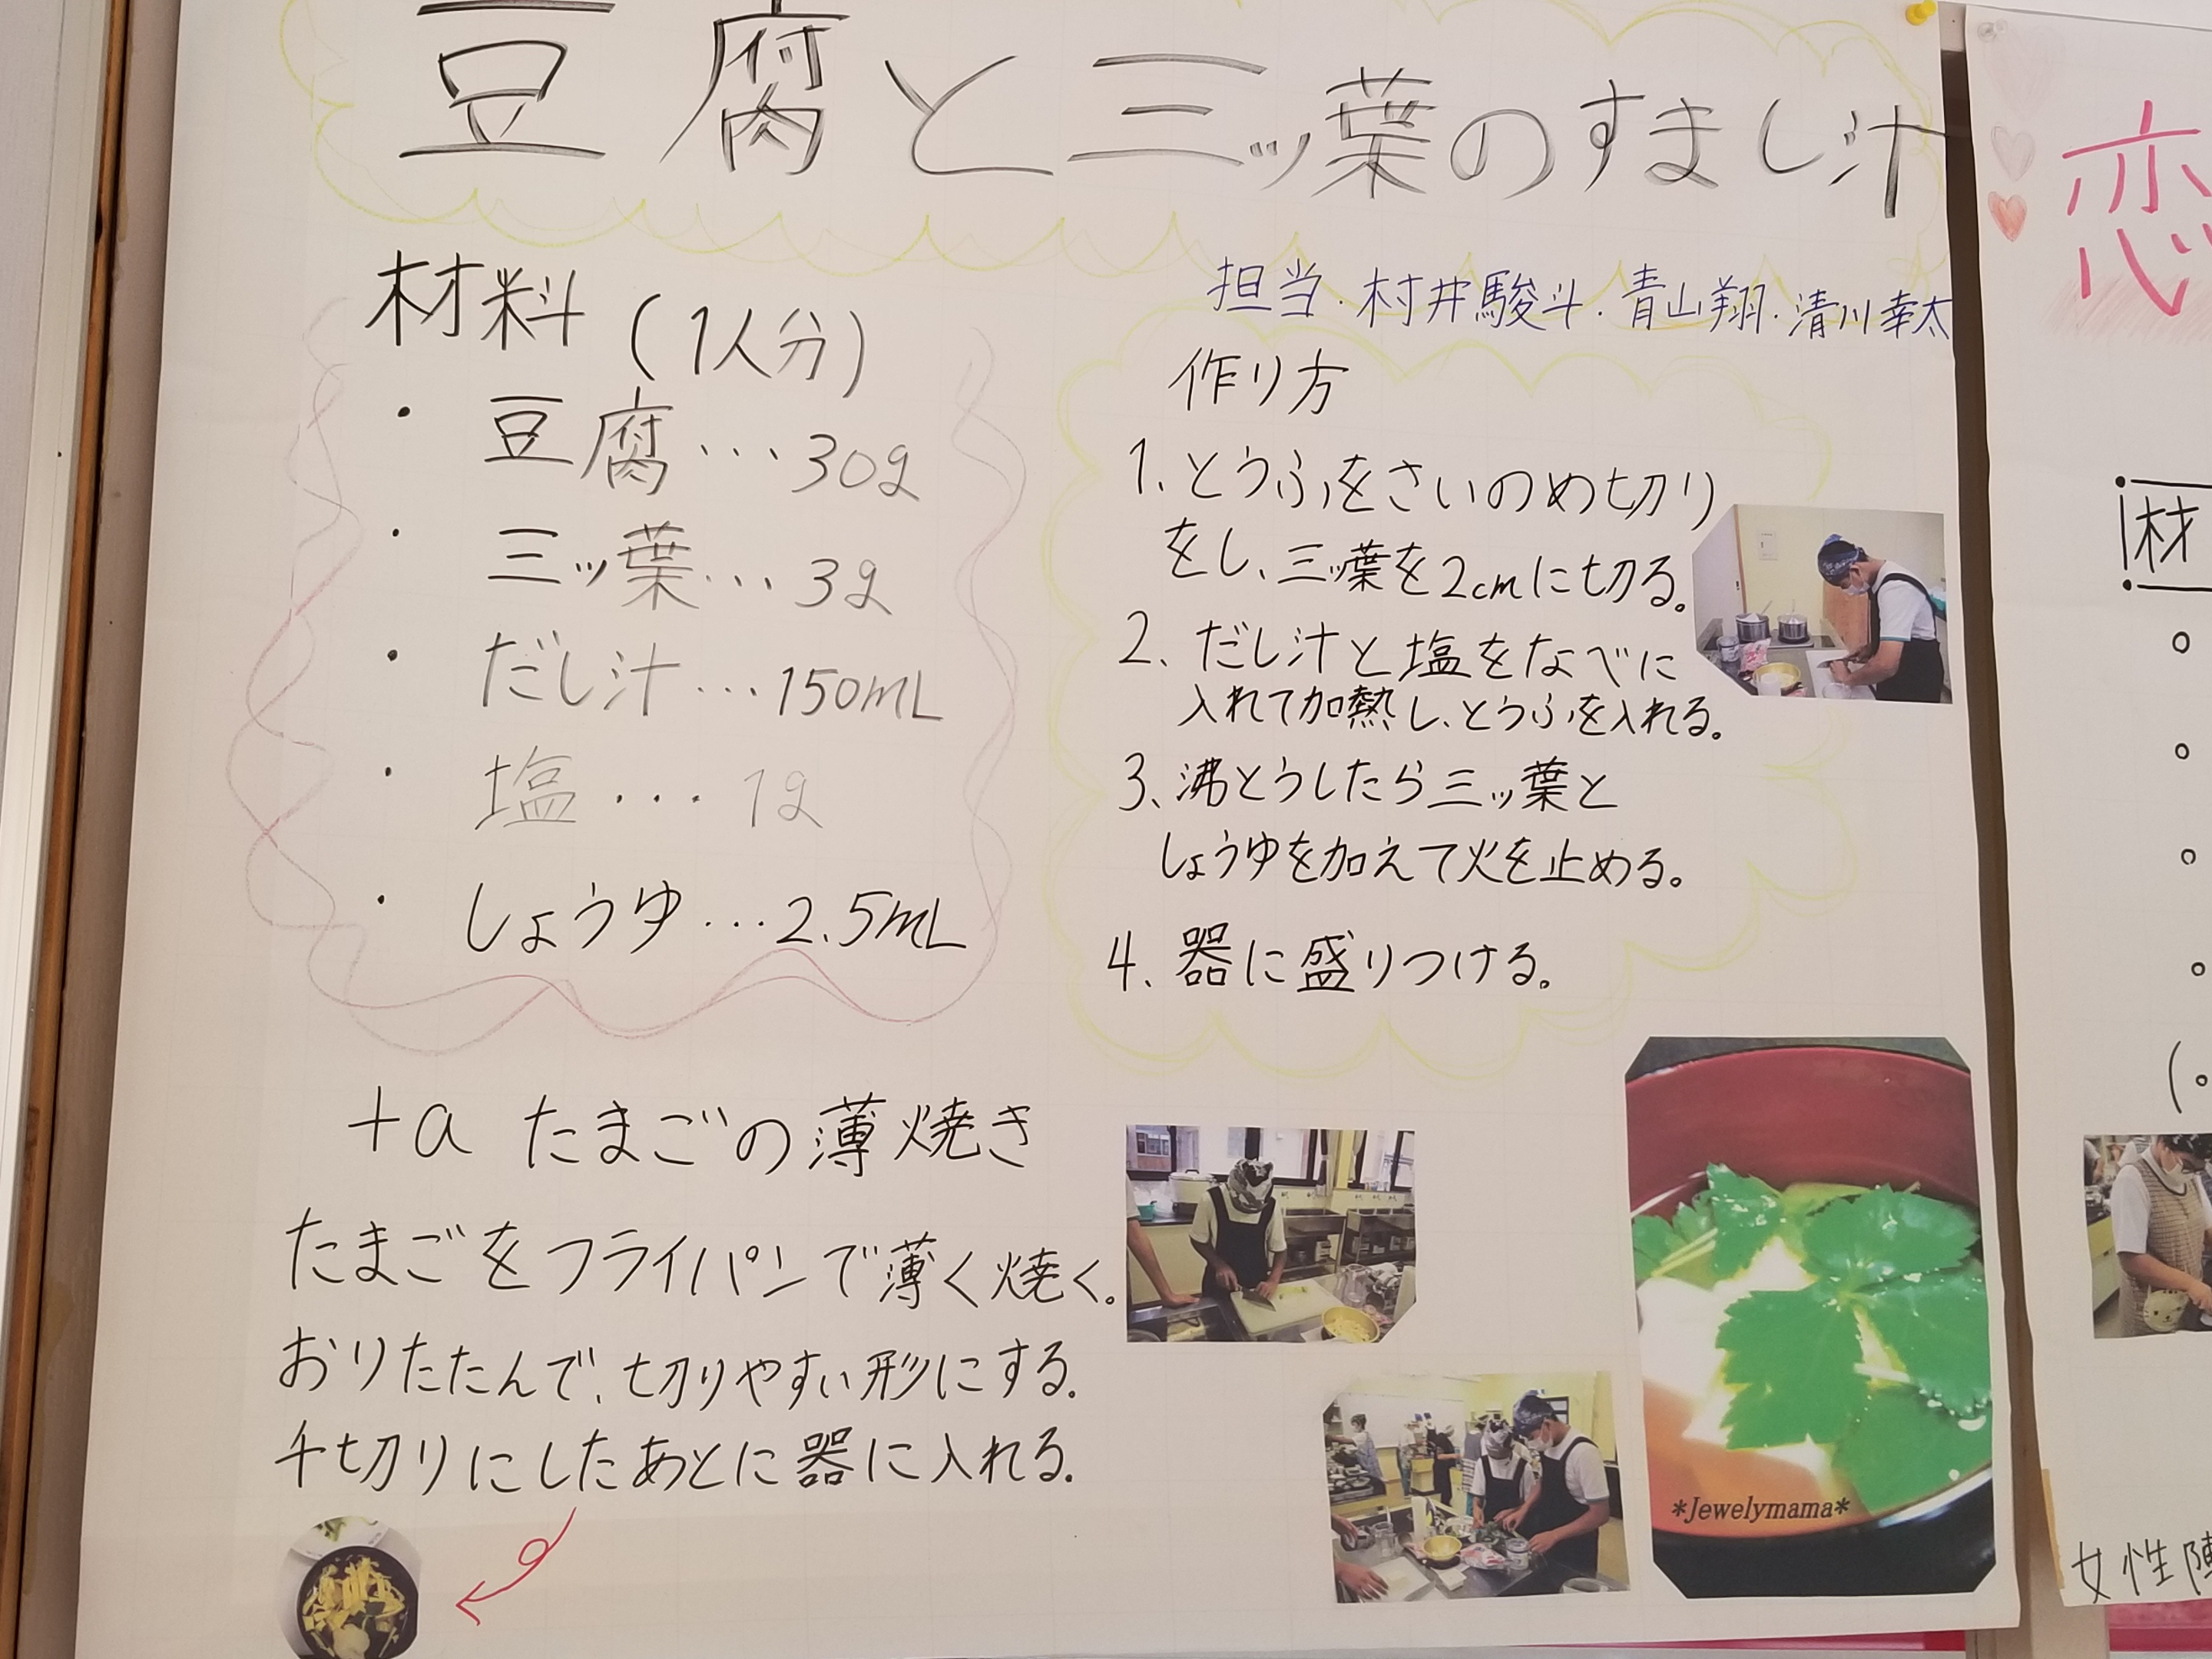 豆腐と三ッ葉のすまし汁
担当・村井駿斗・青山翔・清川幸太
材料(1人分)
・豆腐…30g
・三ッ葉…3g
・だし汁…150mL
・塩…1g
・しょうゆ…2.5mL
作り方
1、とうふをさいのめ切り
をし、三ッ葉を2cmに切る。
2、だし汁と塩をなべに
入れて加熱し、とうふを入れる。
3、沸とうしたら三ッ葉と
しょうゆを加えて火を止める。
4、器に盛りつける。
+a たまごの薄焼き
たまごをフライパンで薄く焼く。
おりたたんで、切りやすい形にする。
千切りにしたあとに器に入れる。
*Jewelymama*
恋
材
女性陣